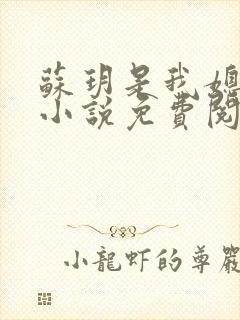 蘇玥是我媳
小說免費閱
小龍蝦的尊嚴